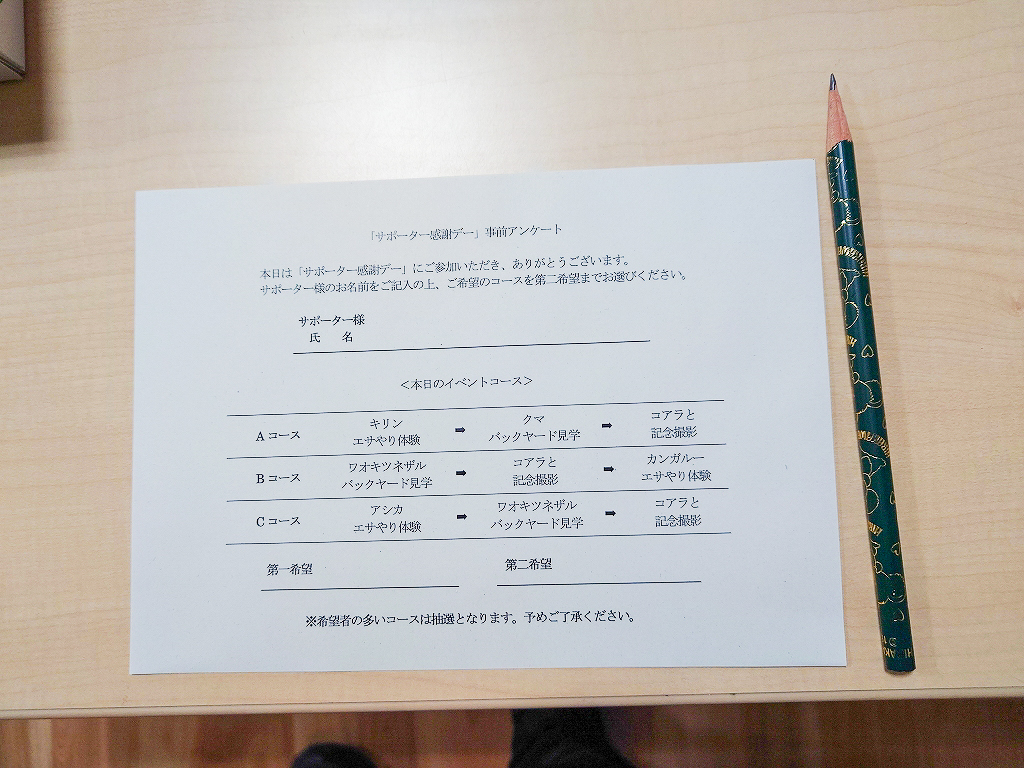 「サポーター感謝デー」事前アンケート
本日は「サポーター感謝デー」にご参加いただき、ありがとうございます。
サポーター様のお名前をご記入の上、ご希望のコースを第二希望までお選びください。
サポーター様
氏　名
＜本日のイベントコース＞
Aコース
キリン
エサやり体験
➡
クマ
バックヤード見学
➡
コアラと
記念撮影
Bコース
ワオキツネザル
バックヤード見学
➡
コアラと
記念撮影
➡
カンガルー
エサやり体験
Cコース
アシカ
エサやり体験
➡
ワオキツネザル
バックヤード見学
➡
コアラと
記念撮影
第一希望
第二希望
※希望者の多いコースは抽選となります。予めご了承ください。